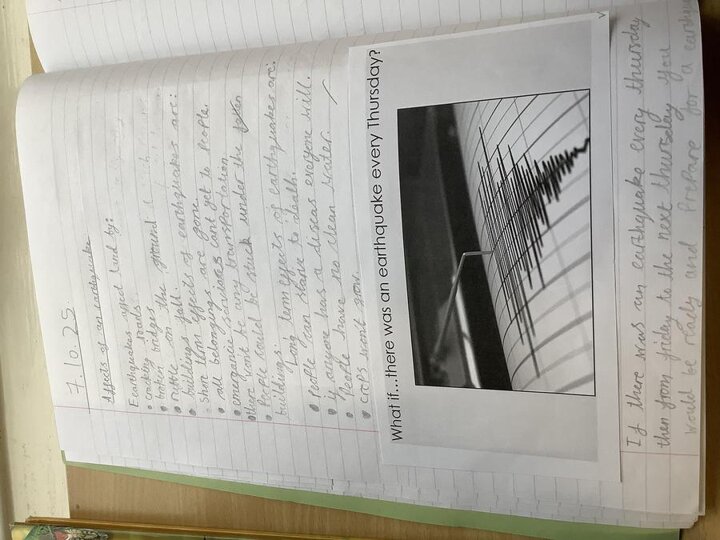 7.10.25
Affects of an earthquake
Eearthquakes affect land by:
• cracking roads
• broken bridges
• rubble on the ground
• buildings fall.
short term effects of earthquakes are:
• all belongings are gone
• emergancie services cant get to people.
• there won't be any transportation
• People could be stuck under the
buildings.
Long term effects of earthquakes are:
• People can starve to death.
• if anyone has a diseas everyone will.
• People have no clean water.
• crops won't grow.
What if...there was an earthquake every Thursday?
If there was an earthquake every thursday
then from friday to the next thursday you
would be ready and prepare for a